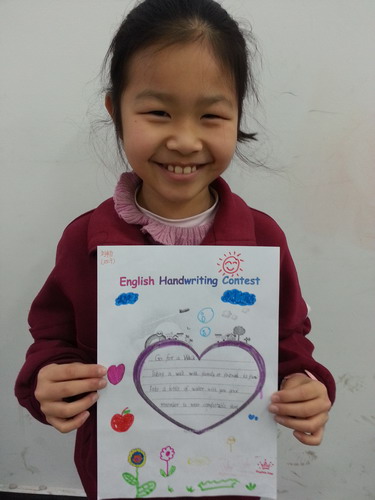 English Handwriting Contest
Go for a Walk
Taking a walk with family or friends is fun
Take a bottle of water with you and
remember to wear comfortable shoes